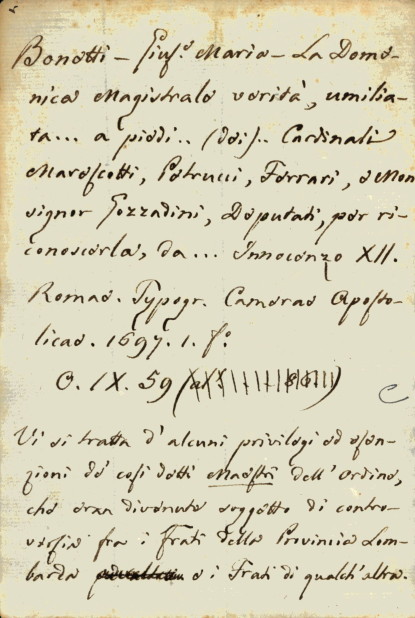 Bonetti – Gius.e Maria – La Dome-
nica Magistrale verità, umilia-
ta... a piedi.. (dei).. Cardinali
Marescotti, Petrucci, Ferrari, e Mon
signor Gozzadini, Deputati, per ri-
conoscerla, da... Innocenzo XII.
Romae. Typogr. Camerae Aposto-
licae. 1697. 1. f.o
O. IX. 59
Vi si tratta d' alcuni privilegi ed esen-
zioni de' così detti Maestri dell' Ordine,
che eran divenute soggetto di contro-
versia fra i Frati della Provincia Lom-
barda e i Frati di qualch' altra.